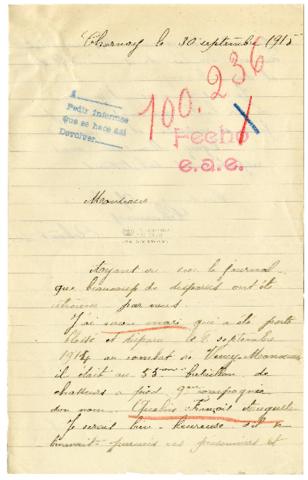 Charnay le 30 septembre 1915
100.236
Pedir informes
que se hace así
Devolver
Fecho
e.a.e.
Monsieur
Ayant vu sur le journal
que beaucoup de disparus ont été
par vous.
J'ai mon mari qui a été porté
blessé et disparu le 2 septembre
1914 au combat de
il était au 55ème bataillon de
chasseurs à pied 9me compagnie
son nom François Auguste
Je serais bien heureuse si le
parmis ces prisonniers et